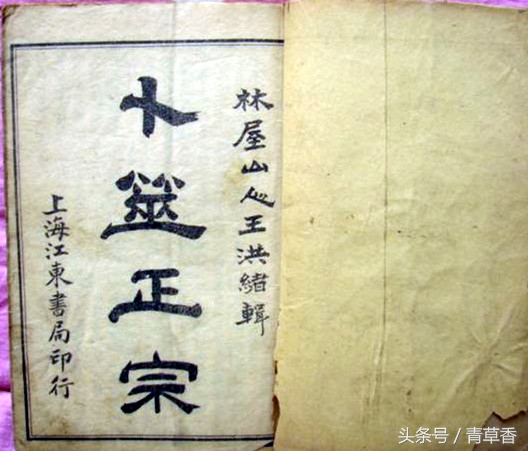 林屋山人王洪緒輯
卜筮正宗
上海江東書局印行
头条号 / 青草香